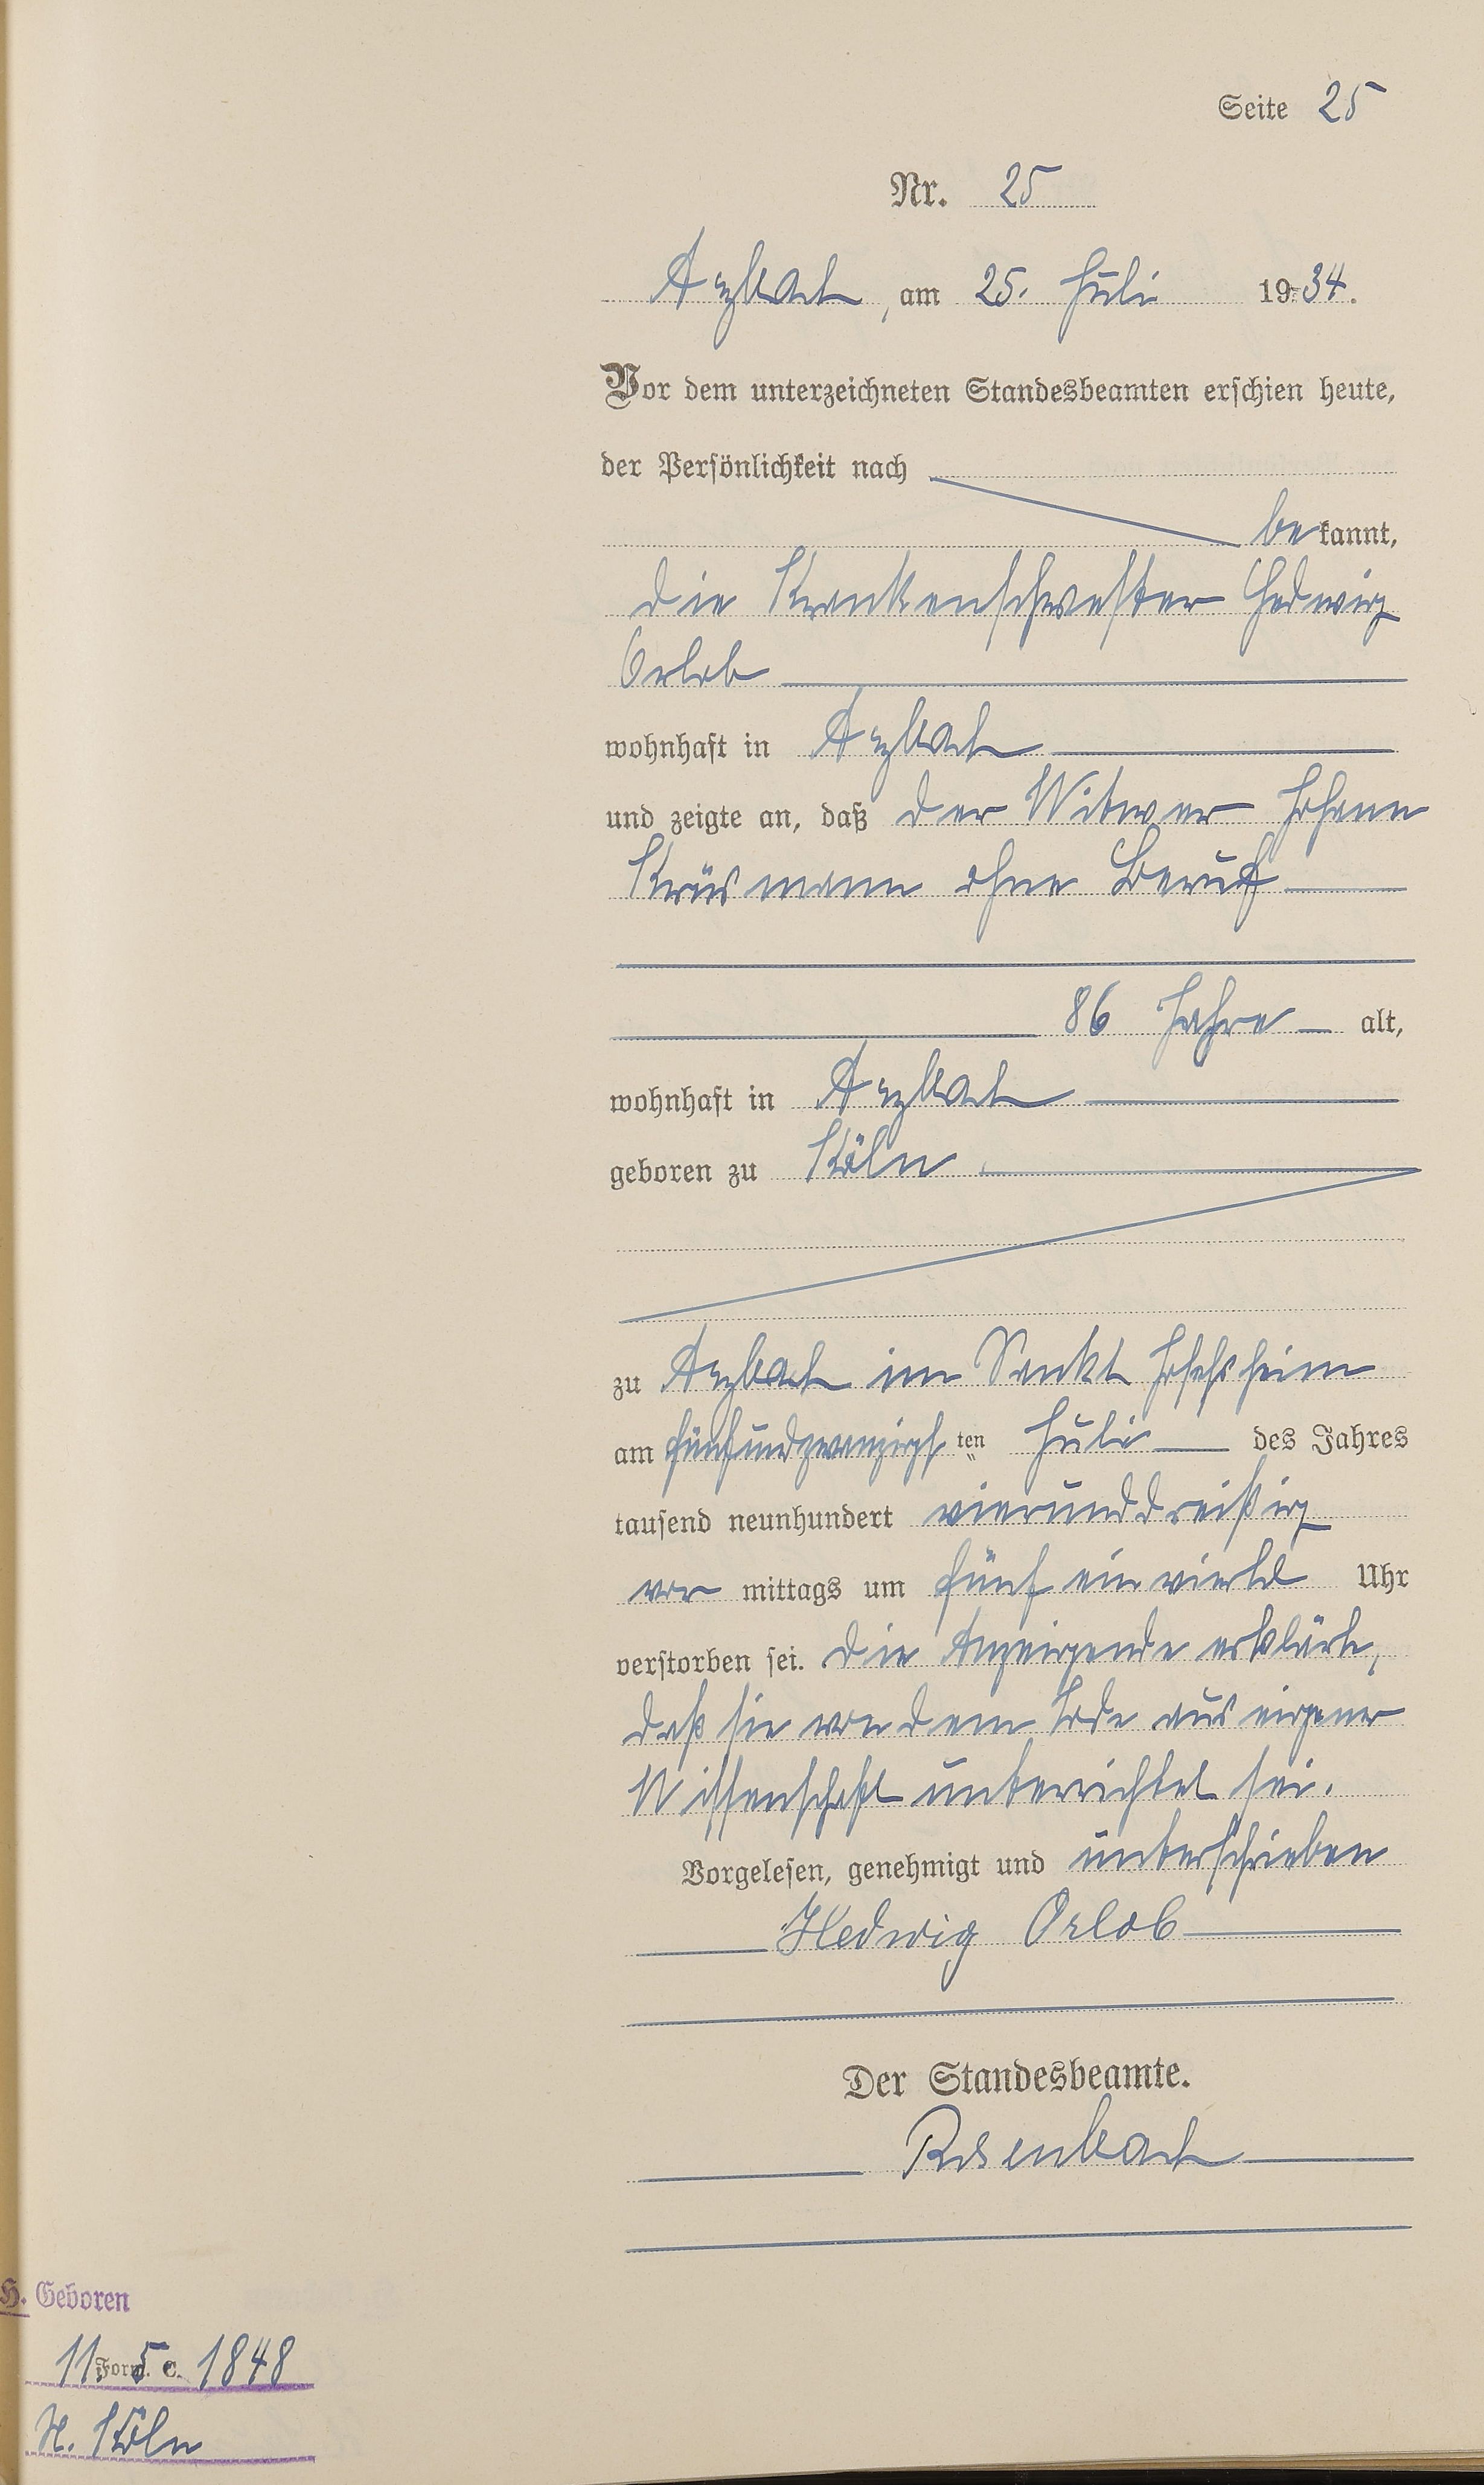 Seite 25
Nr. 25
Arzbach, am 25. Juli 1934.
Vor dem unterzeichneten Standesbeamten erschien heute,
der Persönlichkeit nach
bekannt,
die Krankenschwester Hedwig
Orlob
wohnhaft in Arzbach
und zeigte an, daß der Witwer Johann
Krüsmann ohne Beruf
86 Jahre alt,
wohnhaft in Arzbach
geboren zu Köln
zu Arzbach im Sankt Josefsheim
am fünfundzwanzigsten Juli des Jahres
tausend neunhundert vierunddreißig
vor mittags um fünf ein viertel Uhr
verstorben sei. Die Anzeigende erklärte,
daß sie von dem Tode aus eigener
Wissenschaft unterrichtet sei.
Vorgelesen, genehmigt und unterschrieben
Hedwig Orlob
Der Standesbeamte.
Rosenbach
H. Geboren
11. 5. 1848
Form. C.
N. Köln